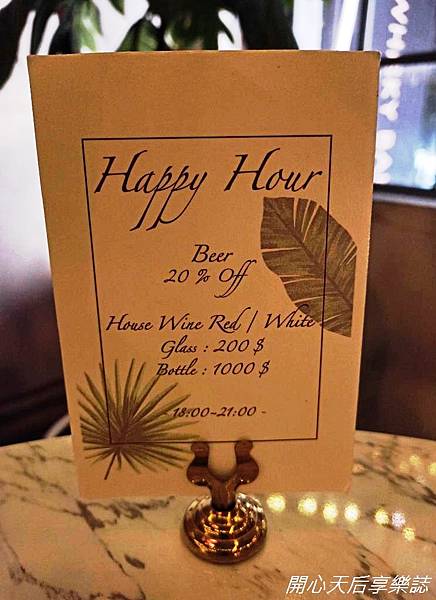 Happy Hour
Beer
20 % Off
House Wine Red / White
Glass : 200 $
Bottle : 1000 $
- 18:00~21:00 -
WHISKY
開心天后享樂誌